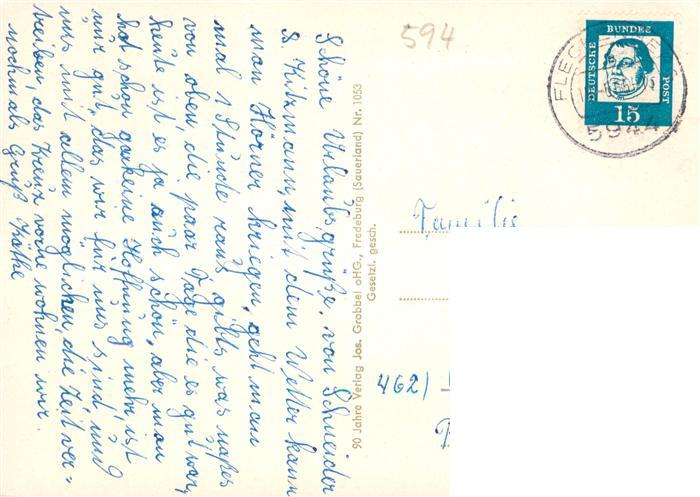 Schöne Urlaubsgrüße, von Schneider
S. Kitzmann, mit dem Wetter kann
man Hörner kriegen, geht man
mal 1 Stunde raus gibts was naßes
von oben, die paar Tage die es gut war,
heute ist es ja auch schön, aber man
hat schon garkeine Hoffnung mehr, ist
nur gut, das wir für uns sind, und
uns mit allem möglichen, die Zeit ver=
treiben, das Kreuz vorne wohnen wir.
nochmals Gruß Käthe
90 Jahre Verlag Jos. Grobbel oHG., Fredeburg (Sauerland) Nr. 1053
Gesetzl. gesch.
594
DEUTSCHE
BUNDES
POST
15
5944
Familie
462/